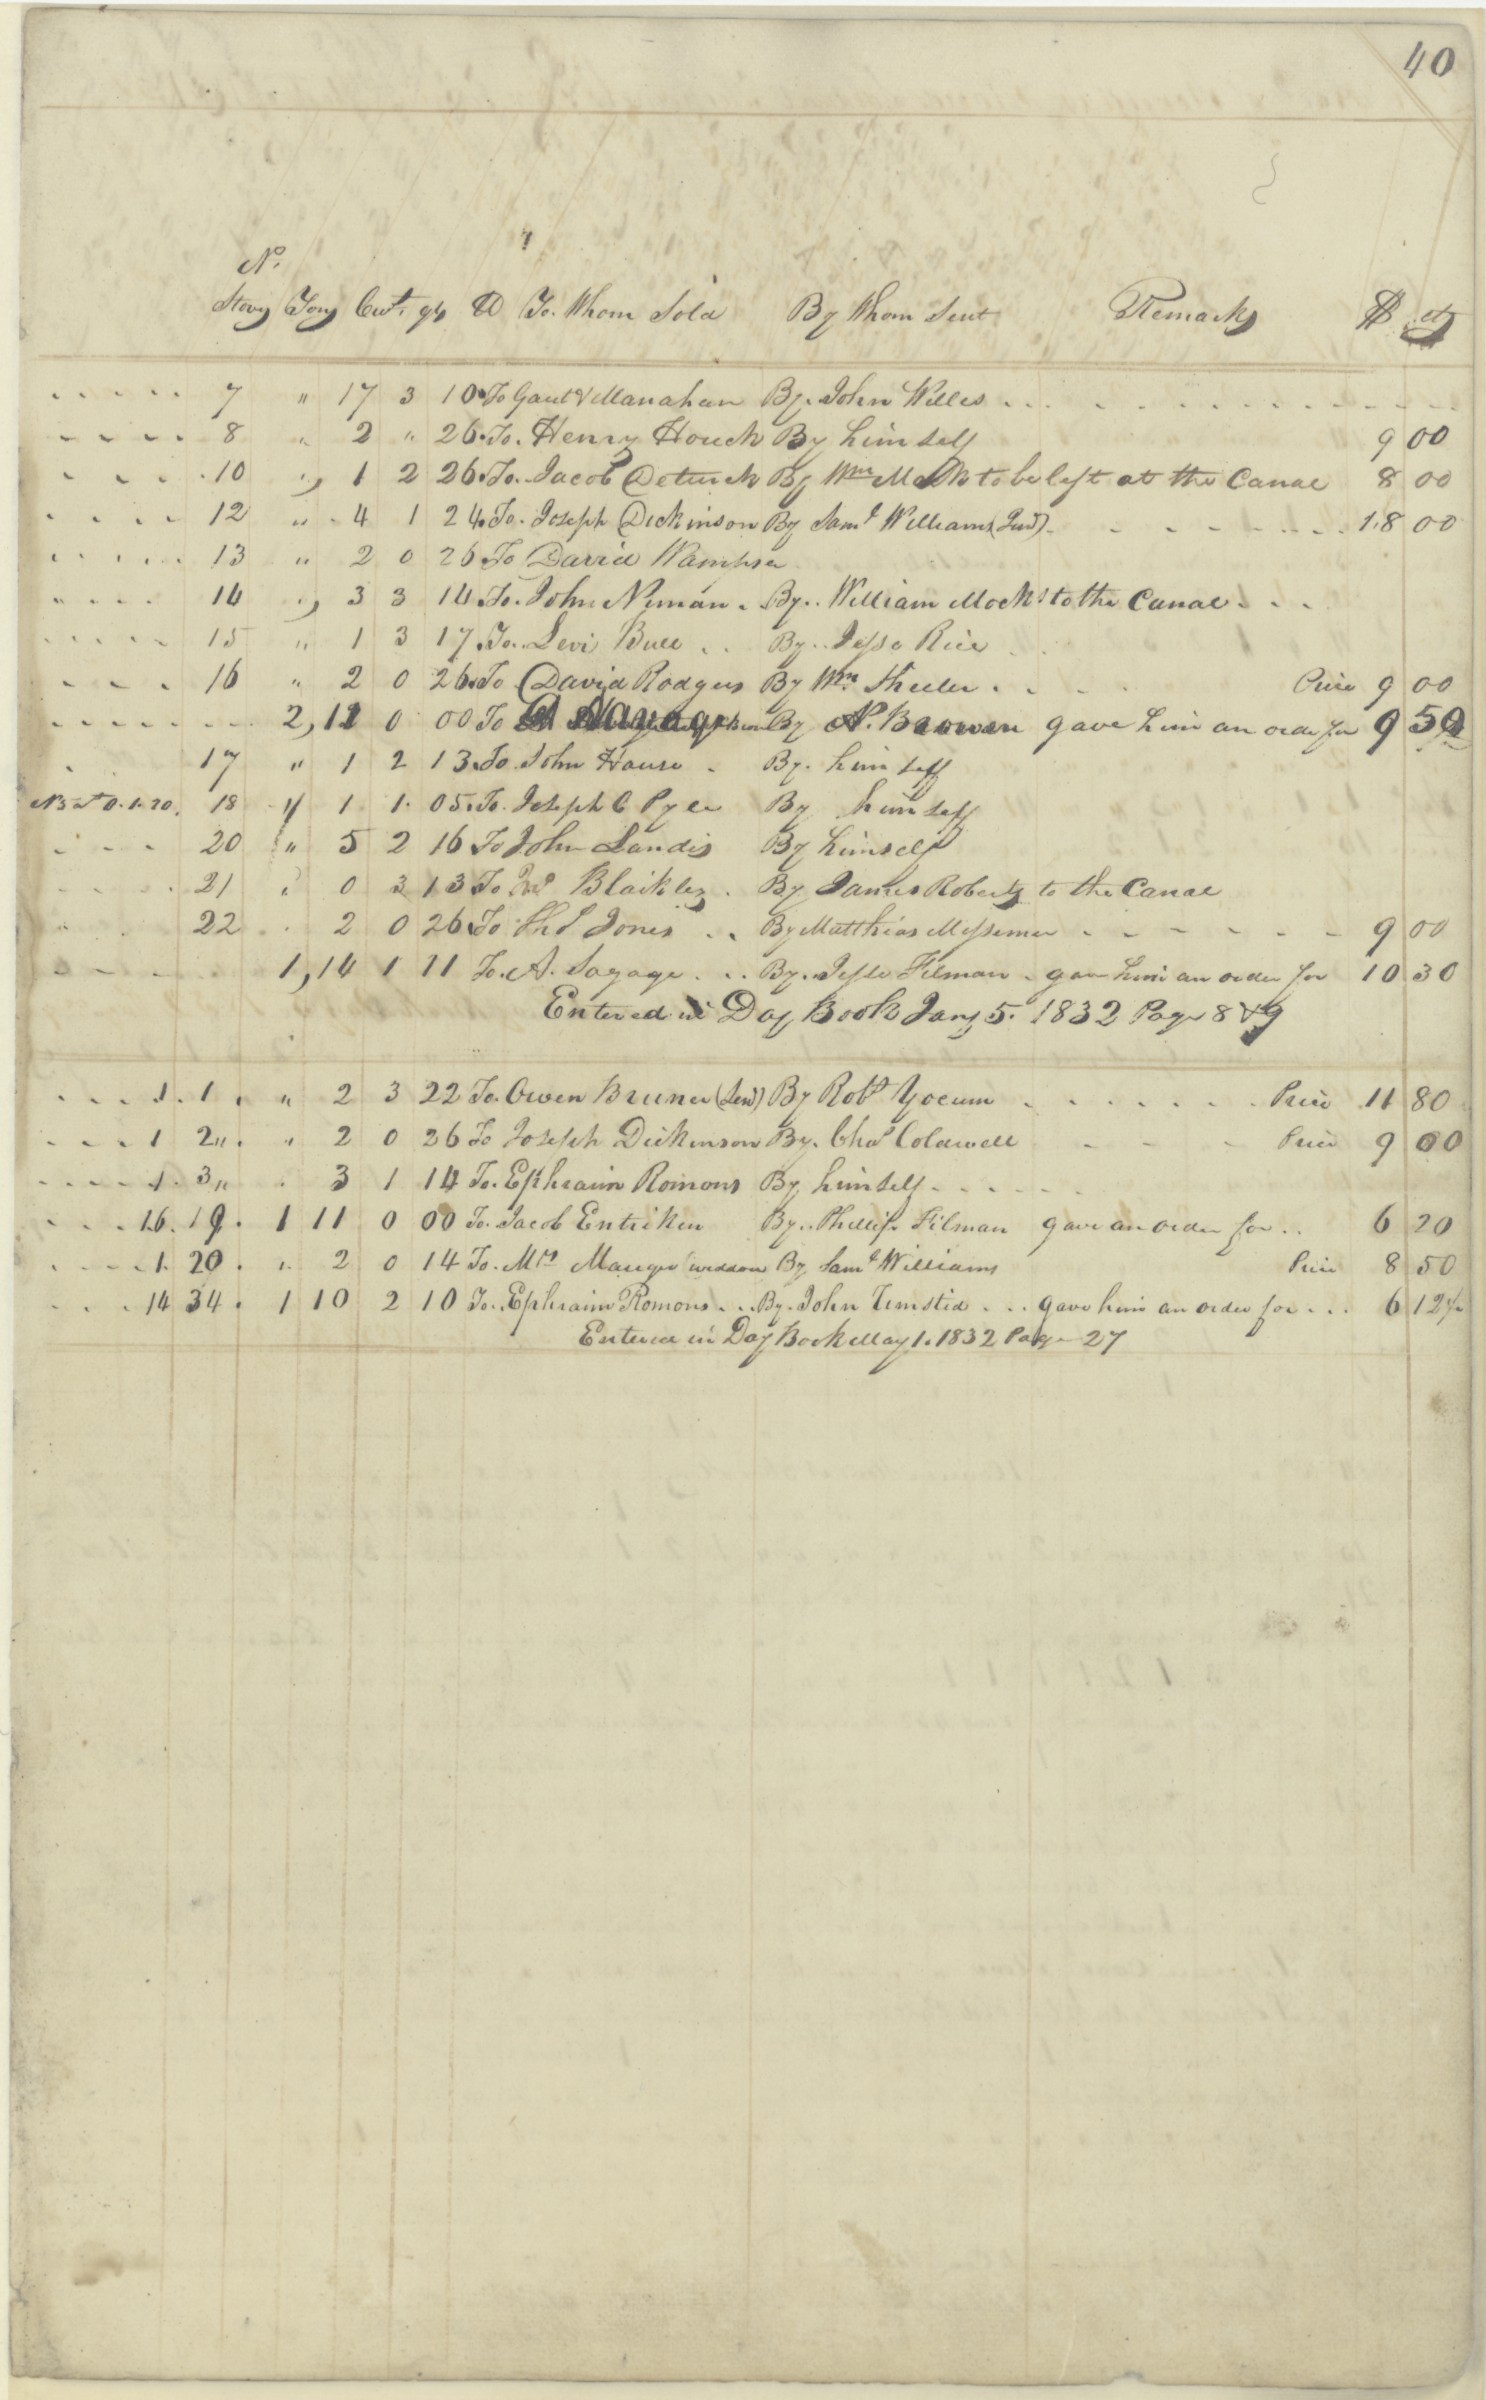 40
No.
Stoves Tons Cwt. qrs lb To Whom Sold By Whom Sent Remarks $ cts
7 " 17 3 10 To Gaut & Manahan By John Willes
8 " 2 " 26 To Henry Houck By himself 9 00
10 " 1 2 26 To Jacob Deturck By Wm Mock to be left at the Canal 8 00
12 " 4 1 24 To Joseph Dickinson By Saml Williams 18 00
13 " 2 0 26 To David Wampser
14 " 3 3 14 To John Nyman By William Mock to the Canal
15 " 1 3 17 To Levi Bull By Jesse Rice
16 " 2 0 26 To David Rodgers By Wm Sheeler Price 9 00
2, 0 00 To A Savage By N. Brower gave him an order for 9 50
17 " 1 2 13 To John House By himself
18 " 1 1 05 To Joseph C Pyle By himself
20 " 5 2 16 To John Landis By himself
21 " 0 3 13 To Blaikley By James Roberts to the Canal
22 " 2 0 26 To Thos Jones By Matthias Messemer 9 00
1, 14 1 11 To A. Savage By Jesse Filman gave him an order for 10 30
Entered in Day Book Jany 5. 1832 Page 8 & 9
1 1 " 2 3 22 To Owen Bruner (Sen) By Robt Yocum Price 11 80
1 2 " 2 0 26 To Joseph Dickinson By Chas Coldwell Price 9 00
1 3 " 3 1 14 To Ephraim Romons By himself
16 19 1 11 0 00 To Jacob Entriken By Phillip Filman gave an order for 6 20
1 20 " 2 0 14 To Mrs Mauger widdow By Saml Williams Price 8 50
14 34 1 10 2 10 To Ephraim Romons By John Umstid gave him an order for 6 12½
Entered in Day Book May 1. 1832 Page 27